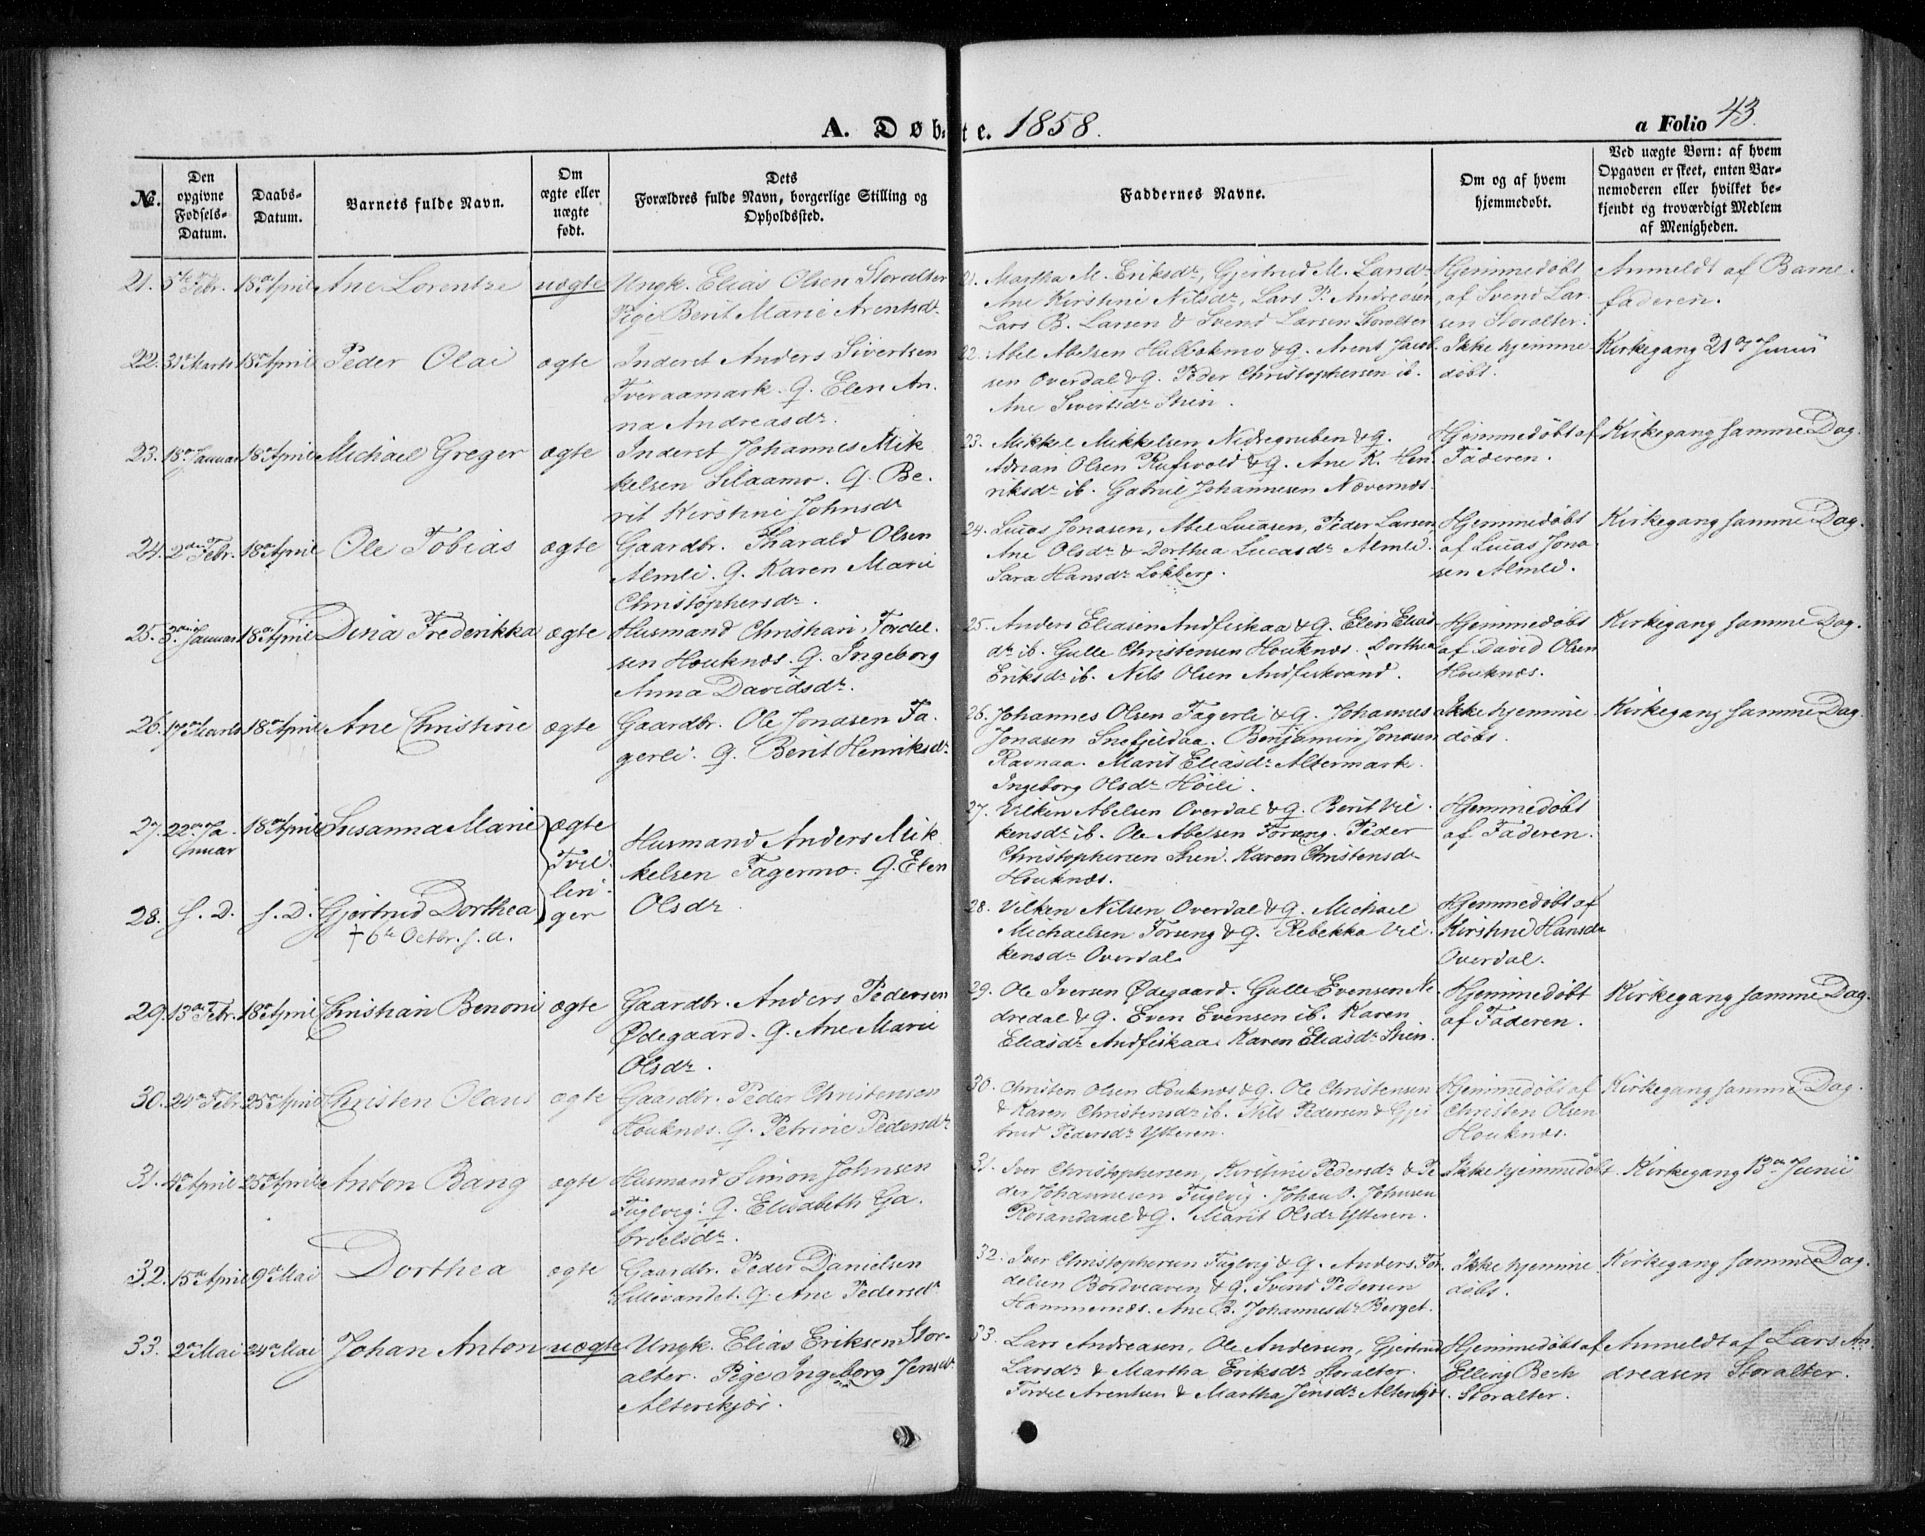 A. Døbte. 1858.
a Folio 43.
No.
Den opgivne Fødsels-Datum.
Daabs-Datum.
Barnets fulde Navn.
Om ægte eller uægte født.
Dets Forældres fulde Navn, borgerlige Stilling og Opholdssted.
Faddernes Navne.
Om og af hvem hjemmedøbt.
Ved uægte Børn: af hvem Opgaven er skeet, enten Barnemoderen eller hvilket bekjendt og troværdigt Medlem af Menigheden.
21. 5te Febr. 18de April Ane Lorentze uægte
Ungk. Elias Olsen Storalter
Pige Berit Marie Arentsdr.
21. Martha M. Eriksdr, Gjertrud M. Larsdr
Ane Kirstine Nilsdr, Lars P. Andreasen
Lars B. Larsen & Svend Larsen Storalter
Hjemmedøbt
af Svend Lar-
sen Storalter.
Anmeldt af Barne-
faderen.
22. 31te Marts 18de April Peder Olai ægte
Inderst Anders Sivertsen
Tveraamark. G. Elen An-
na Andreasdr.
22. Abel Abelsen Hulbakmo & G. Arent Jacob-
sen Overdal & G. Peder Christophersen ib.
Ane Sivertsdr Sten.
Ikke hjemme
døbt.
Kirkegang 21de Junii
23. 18de Januar 18de April Michael Greger ægte
Inderst Johannes Mik-
kelsen Lilaamo. G. Be-
rit Kirstine Johnsdr
23. Mikkel Mikkelsen Nedregruben & G.
Adrian Olsen Rufsvold & G. Ane K. Hen-
riksdr ib. Gabriel Johannesen Nævernæs.
Hjemmedøbt af
Faderen.
Kirkegang samme Dag.
24. 2den Febr. 18de April Ole Tobias ægte
Gaardbr. Tharald Olsen
Almli. G. Karen Marie
Christophersdr.
24. Lucas Jonasen, Abel Lucasen, Peder Larsen,
Ane Olsdr & Dorthea Lucasdr Almli.
Sara Hansdr Lökberg.
Hjemmedøbt
af Lucas Jona-
sen Almli.
Kirkegang samme Dag.
25. Januar 18de April Dina Frederikka ægte
Husmand Christian Tordel-
sen Houknæs. G. Ingeborg
Anna Davidsdr.
25. Anders Eliasen Andfiskaa & G. Elen Elias-
dr ib. Gulle Christensen Houknæs. Dorthea
Eriksdr ib. Nils Olsen Andfiskvand.
Hjemmedøbt
af David Olsen
Houknæs.
Kirkegang samme Dag.
26. 17de Marts 18de April Ane Christine ægte
Gaardbr. Ole Jonasen Fa-
gerli. G. Berit Henriksdr.
26. Johannes Olsen Fagerli & G. Johannes
Jonasen Snefjeldaa. Benjamin Jonasen
Ravnaa. Marit Eliasdr Altermark.
Ingeborg Olsdr Høili.
Ikke hjemme
døbt.
Kirkegang samme Dag.
27. 22de Ja-
nuar 18de April Susanna Marie ægte
Tvil-
lin-
ger
Husmand Anders Mik-
kelsen Fagermo. G. Elen
Olsdr
27. Vilken Abelsen Overdal & G. Berit Vil-
kensdr ib. Ole Abelsen Forseng. Peder
Christophersen Sten. Karen Christensdr
Houknæs.
Hjemmedøbt
af Faderen.
28. s. D. s. D. Gjertrud Dorthea
† 6te Octbr. s. a.
28. Vilken Nilsen Overdal & G. Michael
Michaelsen Forseng & G. Rebekka Vil-
kensdr Overdal.
Hjemmedøbt af
Kirstine Hansdr
Overdal.
29. 13de Febr. 18de April Christian Benoni ægte
Gaardbr. Anders Pedersen
Ødegaard. G. Ane Marie
Olsdr.
29. Ole Iversen Ødegaard. Gulle Evensen Ne-
dredal & G. Even Evensen ib. Karen
Eliasdr Andfiskaa. Karen Eliasdr Sten.
Hjemmedøbt
af Faderen.
Kirkegang samme Dag.
30. 24de Febr. 25de April Christen Olaus ægte
Gaardbr. Peder Christensen
Houknæs. G. Petrine Pedersdr
30. Christen Olsen Houknæs & G. Ole Christensen
& Karen Christensdr ib. Nils Pedersen & Gjer
trud Pedersdr Ytteren.
Hjemmedøbt af
Christen Olsen
Houknæs.
Kirkegang samme Dag.
31. 4de April 25de April Anton Bang ægte
Husmand Simon Johnsen
Fuglvig. G. Elisabeth Ga-
brielsdr.
31. Iver Christophersen, Kirstine Pedersdr & Pe-
der Johannesen Fuglvig. Johan Johnsen
Rosandauel & G. Marit Olsdr Ytteren.
Ikke hjemmedøbt
Kirkegang 13de Junii
32. 15de April 9de Mai Dorthea ægte
Gaardbr. Peder Danielsen
Lillevandet. G. Ane Pedersdr
32. Iver Christophersen Fuglvig & G. Anders Tor-
delsen Bordveaven & G. Svend Pedersen
Hammernæs. Ane B. Johannesdr Berget.
Ikke hjemme
døbt.
Kirkegang samme Dag.
33. 2den Mai 24de Mai Johan Anton uægte
Ungk. Elias Eriksen Stor-
alter. Pige Ingeborg Jensdr
Alterskjær.
33. Lars Andreasen, Ole Andersen, Gjertrud
Larsdr & Martha Eriksdr Storalter.
Tordel Arentsen & Martha Jensdr Alterskjær
Hjemmedøbt af
Elling Bech
Storalter.
Anmeldt af Lars An-
dreasen Storalter.